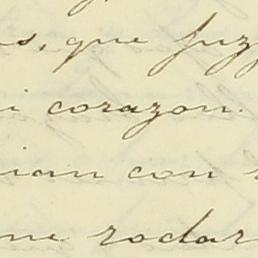 s, que juz
i corazon.
ian con
me rodar